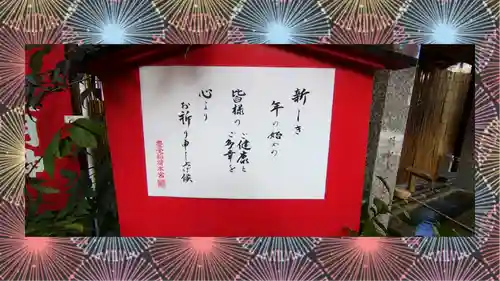 新しき
年の始めに
皆様の
ご健康と
ご多幸を
心より
お祈り申し上げ候
豊受稲荷本宮